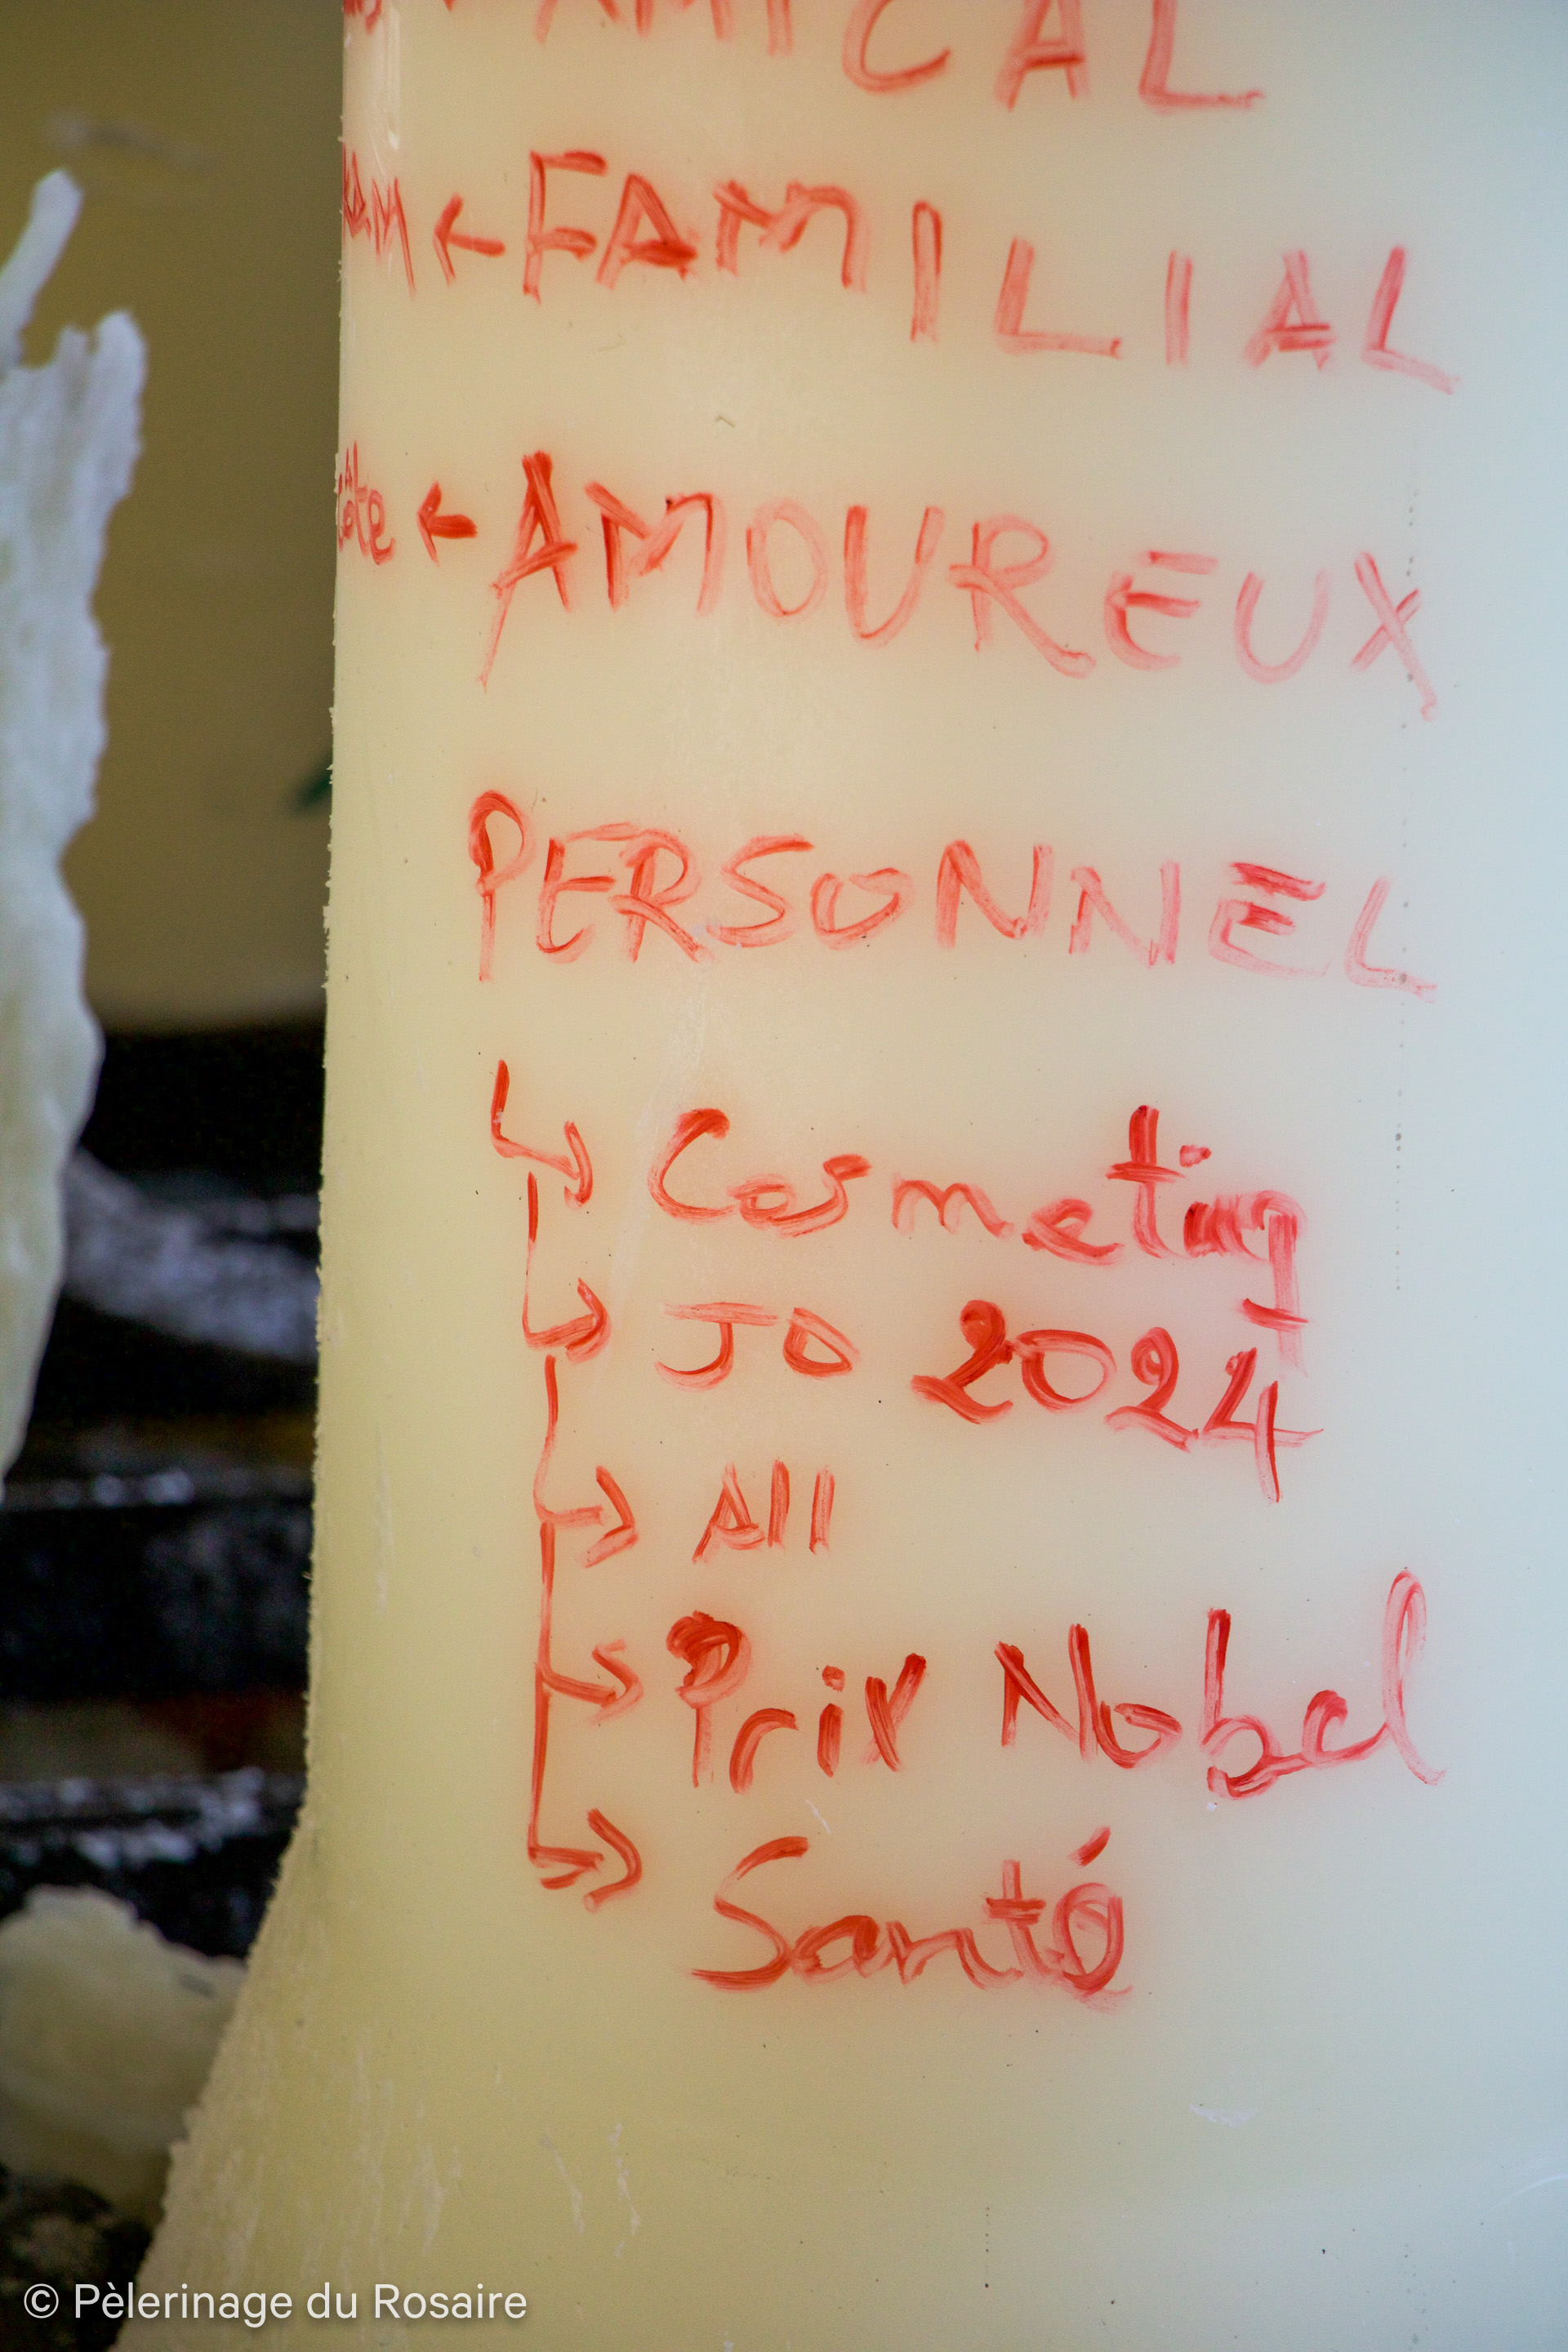 ← AMICAL
← FAMILIAL
← AMOUREUX
PERSONNEL
↳ Cosmetiq
→ JO 2024
→ All
→ Prix Nobel
→ Santé
© Pèlerinage du Rosaire